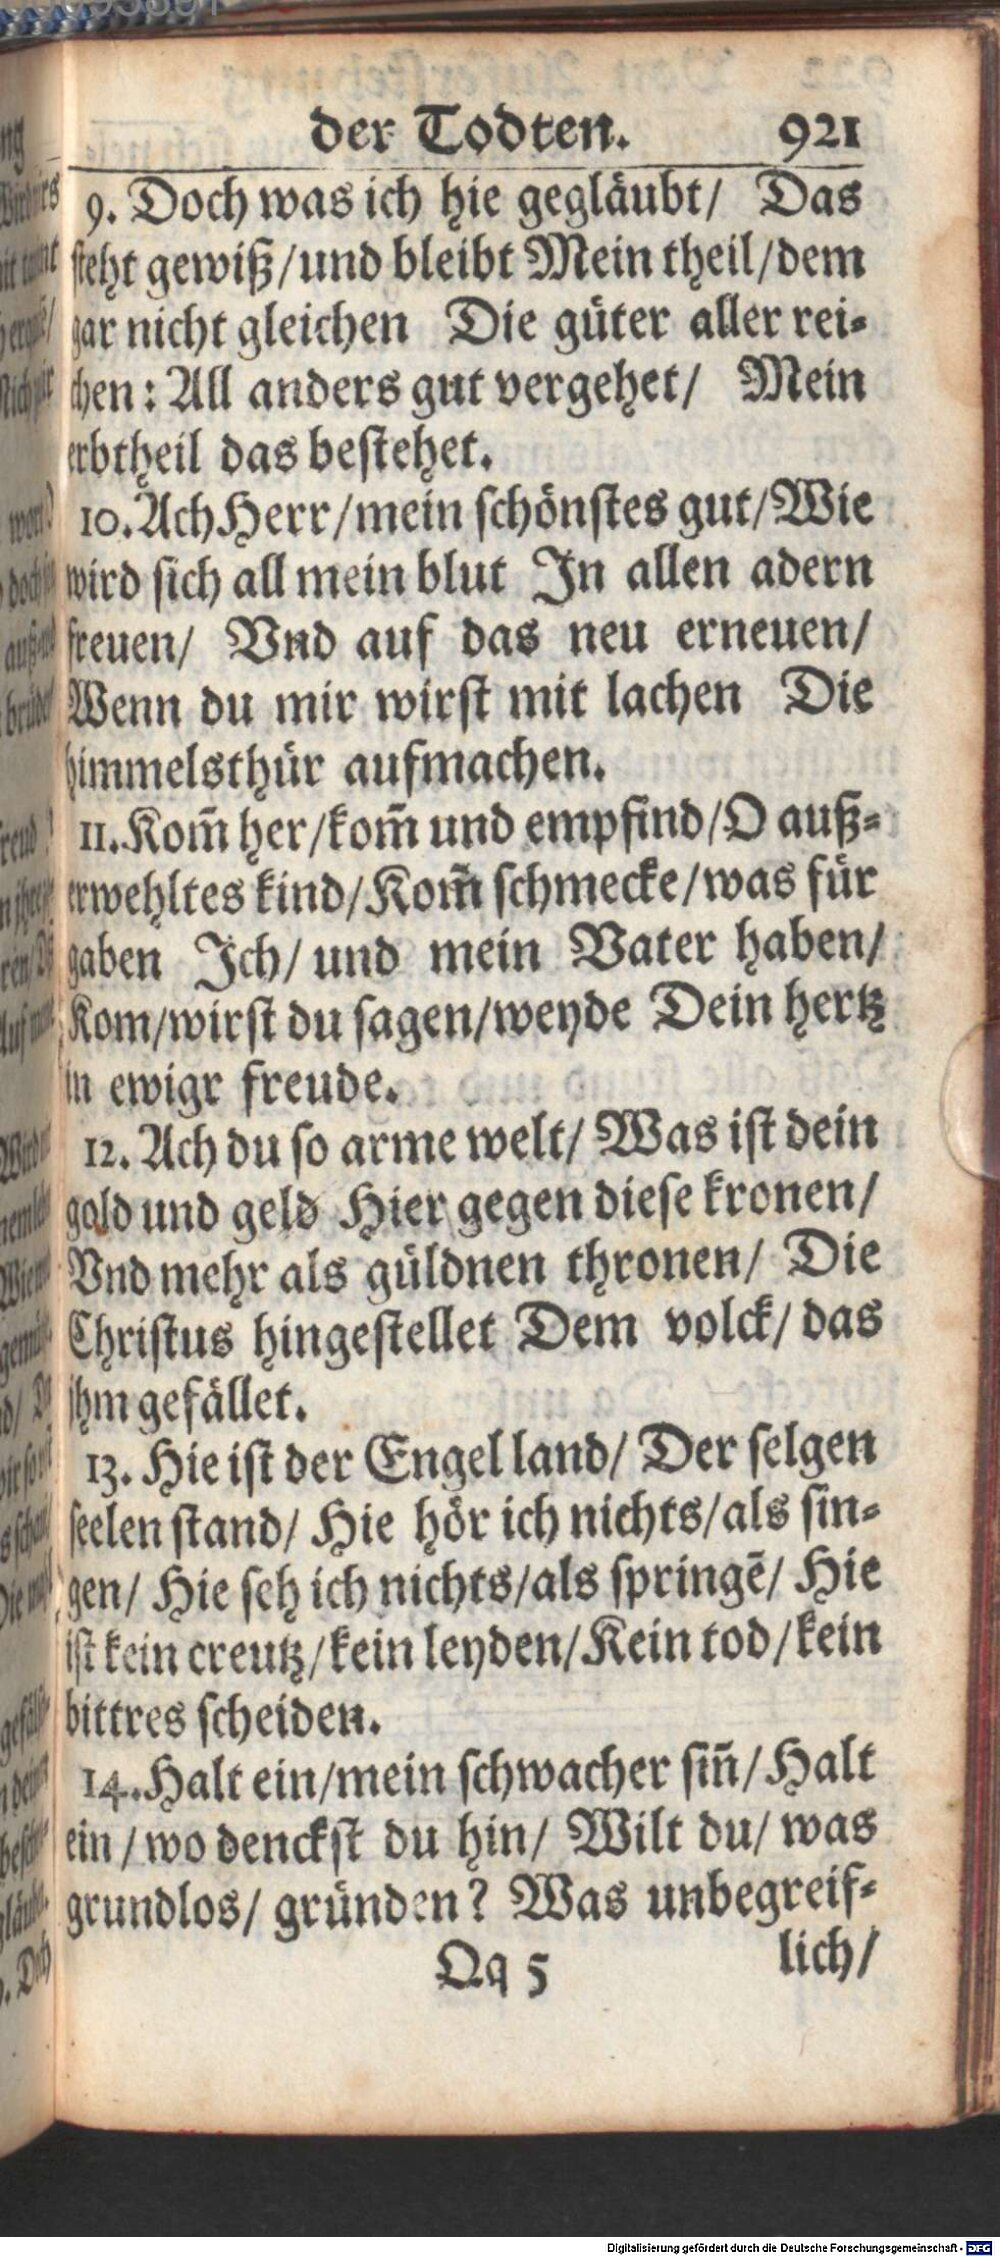 der Todten. 921
9. Doch was ich hie gegläubt/ Das
steht gewiß/und bleibt Mein theil/dem
gar nicht gleichen Die güter aller rei-
chen: All anders gut vergehet/ Mein
erbtheil das bestehet.
10. Ach Herr/mein schönstes gut/Wie
wird sich all mein blut In allen adern
freuen/ Vnd auf das neu erneuen/
Wenn du mir wirst mit lachen Die
himmelsthür aufmachen.
11. Kom̃ her/kom̃ und empfind/O auß-
erwehltes kind/Kom̃ schmecke/was für
gaben Ich/ und mein Vater haben/
Kom/wirst du sagen/weyde Dein hertz
in ewigr freude.
12. Ach du so arme welt/ Was ist dein
gold und geld Hier gegen diese kronen/
Vnd mehr als güldnen thronen/ Die
Christus hingestellet Dem volck/ das
ihm gefället.
13. Hie ist der Engel land/ Der selgen
seelen stand/ Hie hör ich nichts/als sin-
gen/ Hie seh ich nichts/als springē/ Hie
ist kein creutz/kein leyden/Kein tod/kein
bittres scheiden.
14. Halt ein/mein schwacher sin̄/ Halt
ein/wo denckst du hin/ Wilt du/ was
grundlos/ gründen? Was unbegreif-
Qq 5 lich/
Digitalisierung gefördert durch die Deutsche Forschungsgemeinschaft - DFG